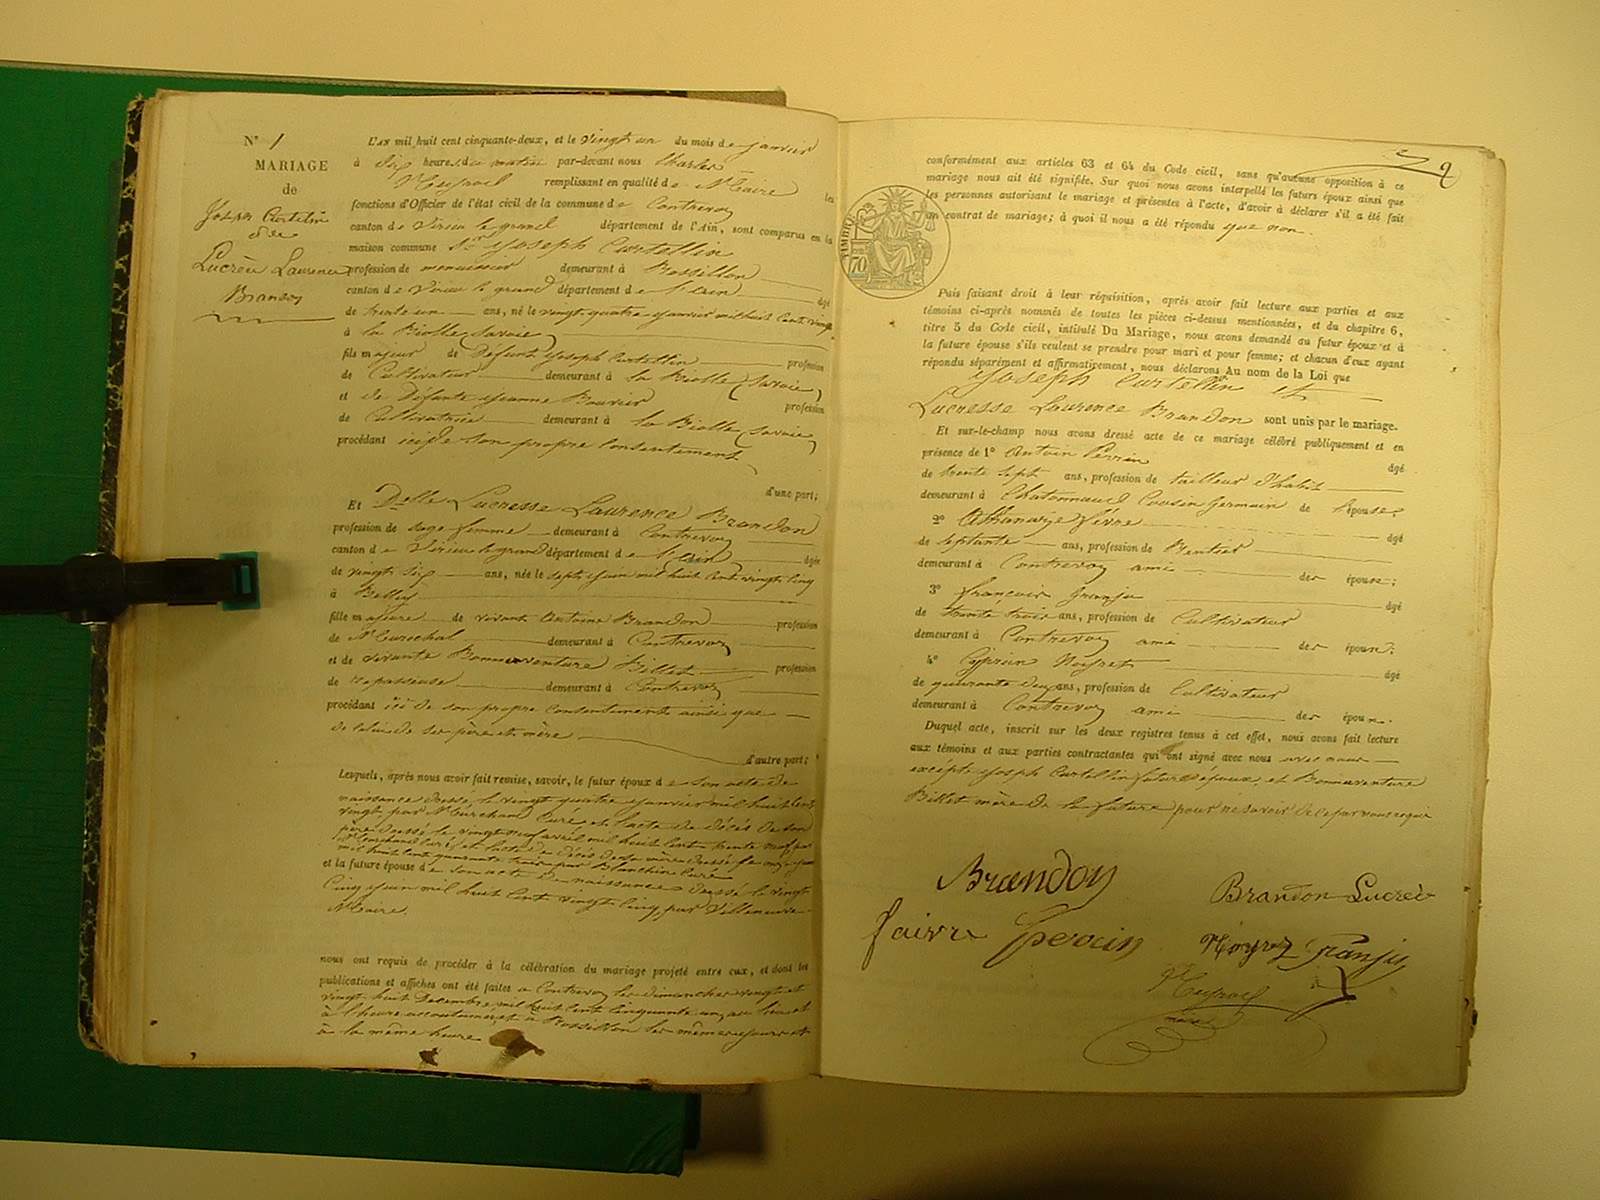 N° 1
MARIAGE
de
Joseph Curtelin
et de
Lucrèce Laurence
Brandon
L'AN mil huit cent cinquante-deux, et le vingt un du mois de janvier
à dix heures du matin par-devant nous Charles
remplissant en qualité de Maire les
fonctions d'Officier de l'état civil de la commune de Contrevoz
canton de Virieu le grand département de l'Ain, sont comparus en la
maison commune Sr Joseph Curtellin
profession de menuisier demeurant à Rossillon
canton de Virieu le grand département de l'ain âgé
de trente un ans, né le vingt quatre janvier mil huit cent vingt
à la Biolle Savoie
fils majeur de Défunt Joseph Curtellin profession
de Cultivateur demeurant à la Biolle (Savoie)
et de Défunte Jeanne Bouvier profession
de Cultivatrice demeurant à la Biolle (Savoie)
procédant ici de son propre consentement
d'une part;
Et Delle Lucresse Laurence Brandon
profession de sage femme demeurant à Contrevoz
canton de Virieu le grand département de l'ain âgée
de vingt six ans, née le sept juin mil huit cent vingt cinq
à Belley
fille majeure de vivant Antoine Brandon profession
de Marechal demeurant à Contrevoz
et de vivante Bonnaventure Billet profession
de repasseuse demeurant à Contrevoz
procédant ici de son propre consentement ainsi que
de celui de ses père et mère
d'autre part;
Lesquels, après nous avoir fait remise, savoir, le futur époux de son acte de
naissance dressé le vingt quatre janvier mil huit cent
vingt par Mr Curé et l'acte de décès de son
père dressé le vingt neuf avril mil huit cent trente neuf par
Curé, et l'acte de décès de sa mère dressé le
mil huit cent quarante trois par Blanchin Curé
et la future épouse de son acte de naissance dressé le vingt
Cinq juin mil huit cent vingt cinq, par Villeneuve
Maire.
nous ont requis de procéder à la célébration du mariage projeté entre eux, et dont les
publications et affiches ont été faites à Contrevoz les dimanches vingt et
vingt huit Decembre mil huit cent cinquante un, au lieu et
à l'heure accoutumée, et à Rossillon les mêmes jours et
à la même heure
2
conformément aux articles 63 et 64 du Code civil, sans qu'aucune opposition à ce
mariage nous ait été signifiée. Sur quoi nous avons interpellé les futurs époux ainsi que
les personnes autorisant le mariage et présentes à l'acte, d'avoir à déclarer s'il a été fait
un contrat de mariage; à quoi il nous a été répondu que non.
TIMBRE
70
Puis faisant droit à leur réquisition, après avoir fait lecture aux parties et aux
témoins ci-après nommés de toutes les pièces ci-dessus mentionnées, et du chapitre 6,
titre 5 du Code civil, intitulé Du Mariage, nous avons demandé au futur époux et à
la future épouse s'ils veulent se prendre pour mari et pour femme; et chacun d'eux ayant
répondu séparément et affirmativement, nous déclarons Au nom de la Loi que
Joseph Curtellin et
Lucresse Laurence Brandon sont unis par le mariage.
Et sur-le-champ nous avons dressé acte de ce mariage célébré publiquement et en
présence de 1° Antoin Perrin âgé
de trente sept ans, profession de tailleur d'habit
demeurant à Cousin Germain de l'épouse;
2° Athanaize févre âgé
de septante ans, profession de Rentier
demeurant à Contrevoz ami des époux;
3° françois âgé
de trente trois ans, profession de Cultivateur
demeurant à Contrevoz ami des époux;
4° Cyprien âgé
de quarante deux ans, profession de Cultivateur
demeurant à Contrevoz ami des époux.
Duquel acte, inscrit sur les deux registres tenus à cet effet, nous avons fait lecture
aux témoins et aux parties contractantes qui ont signé avec nous
excépté Joseph Curtellin futur époux, et Bonnaventure
Billet mère de la future pour ne savoir de ce par nous requis
Brandon
Brandon Lucrèce
faivre Perrin
maire